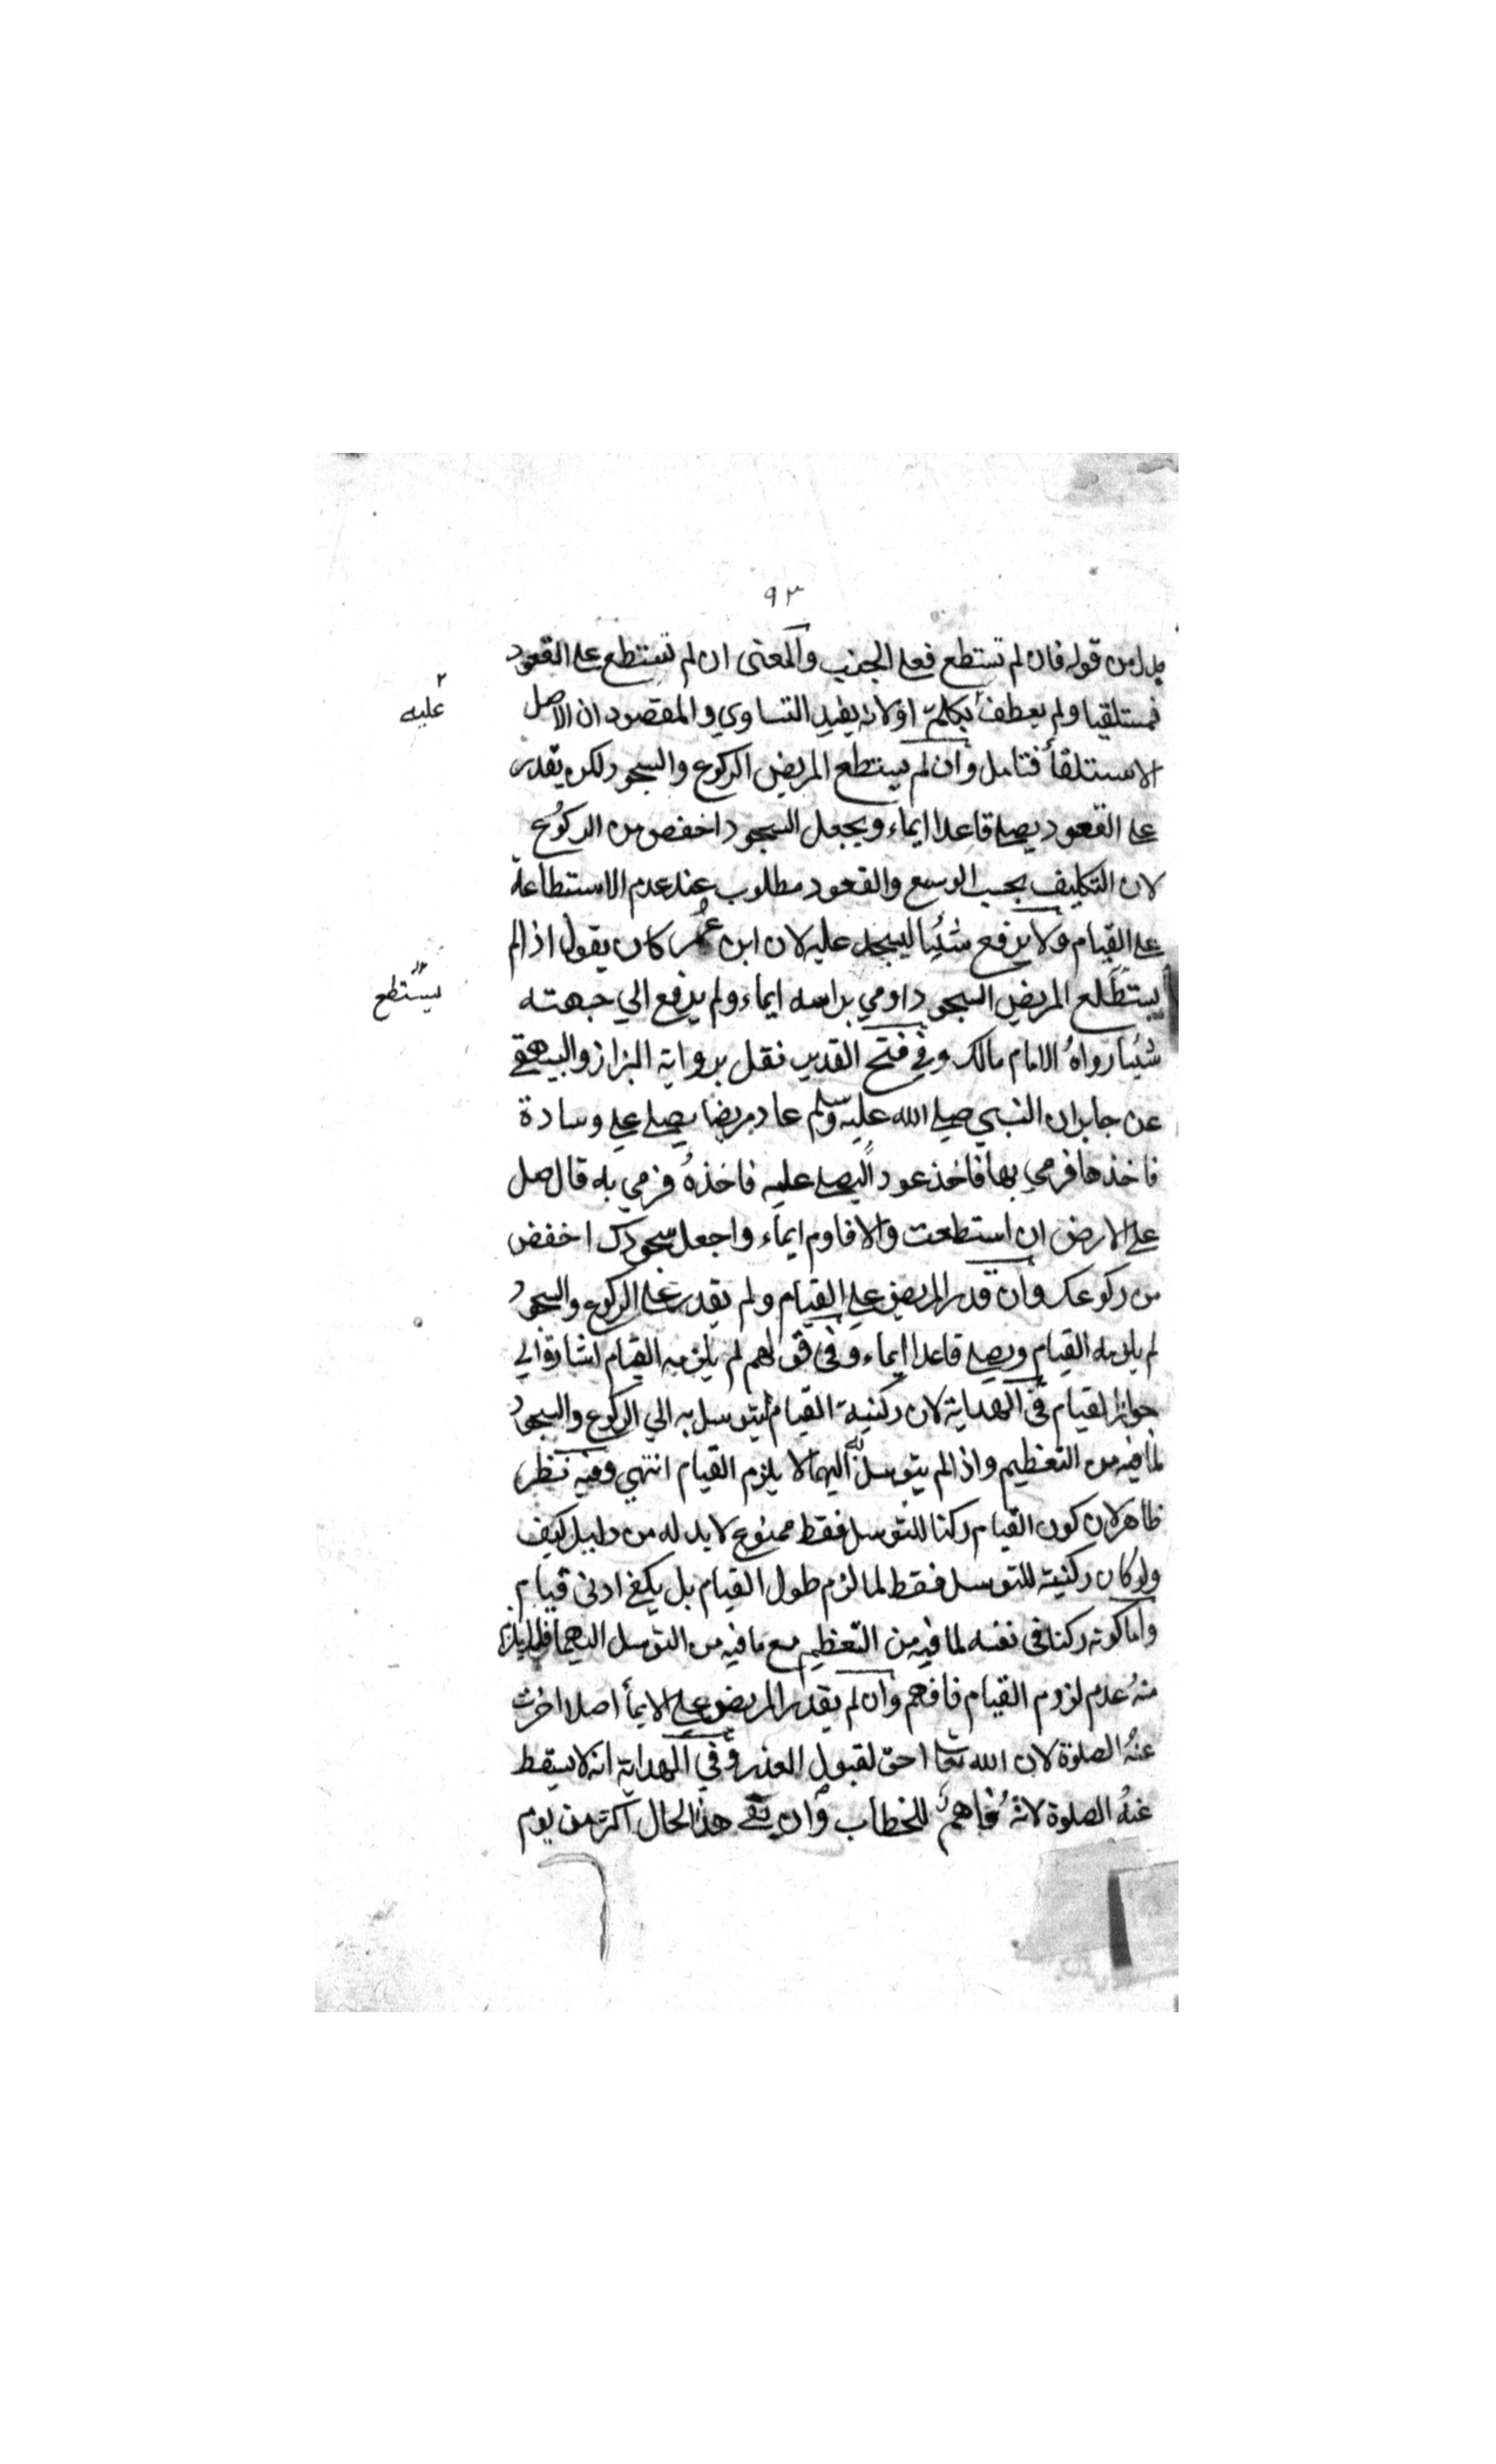 ٩٣
بدل من قوله فان لم تستطع فعلى الجنب والمعنى ان لم تستطع على القعود
فمستلقيا ولم يعطف بكلمة او لانه يفيد التساوي والمقصود ان الاصل
عليه
الاستلقأ فتامل وان لم يستطع المريض الركوع والسجود لكن يقدر
على القعود يصلي قاعدا ايماء ويجعل السجود اخفض من الركوع
لان التكليف بحسب الوسع والقعود مطلوب عند عدم الاستطاعة
على القيام ولا يرفع شئيا ليسجد عليه لان ابن عمر كان يقول اذا لم
يستطع المريض السجود اومي براسه ايماء ولم يرفع الي جبهته
يستطع
شئيا رواه الامام مالك وفي فتح القدير نقل برواية البزاز والبيهقي
عن جابر ان النبي صلى الله عليه وسلم عاد مريضا يصلي على وسادة
فاخذها فرمي بها فاخذ عودا ليصلي عليه فاخذه فرمي به قال صل
على الارض ان استطعت والا فاوم ايماء واجعل سجودك اخفض
من ركوعك وان قدر المريض على القيام ولم يقدر على الركوع والسجود
لم يلزمه القيام ويصلي قاعدا ايماء وفي قولهم لم يلزمه القيام اشارة الي
جواز القيام في الهداية لان ركنية القيام ليتوسل به الي الركوع والسجود
لما فيه من التعظيم واذا لم يتوسل به اليهما لا يلزم القيام انتهي وفيه نظر
ظاهر لان كون القيام ركنا للتوسل فقط ممنوع لا بد له من دليل كيف
ولو كان ركنيته للتوسل فقط لما لزم طول القيام بل يكفي ادنى قيام
واما كونه ركنا في نفسه لما فيه من التعظيم مع ما فيه من التوسل اليهما فلا يلزم
منه عدم لزوم القيام فافهم وان لم يقدر المريض على الايمأ اصلا اخرت
عنه الصلوة لان الله تعا احق لقبول العذر وفي الهداية انه لا يسقط
عنه الصلوة لانه فاهم للخطاب وان بقي هذا لحال اكثر من يوم